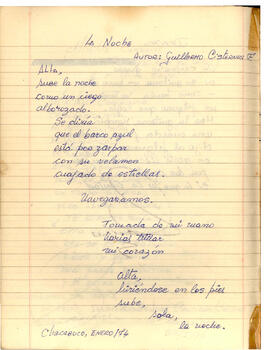 La Noche
Autor: Guillermo Cisternas F.
Alta,
sube la noche
como un ciego
alborozado.
Se diría
que el barco azul
está por zarpar
con su velamen
cuajado de estrellas.
Navegaríamos.
Tomada de mi mano
harías titilar
mi corazón
Alta,
hiriéndose en los pies
sube,
sola,
la noche.
Chacabuco, enero/74